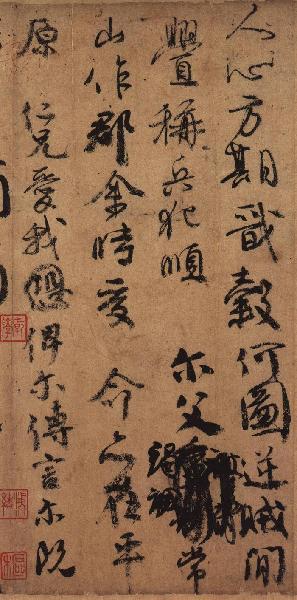 人心方期戩穀何圖逆賊閒
舋稱兵犯順尔父竭誠常
山作郡余時受命亦在平
原仁兄愛我俾尔傳言尔既